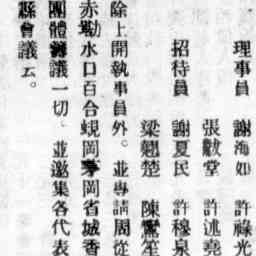 理事員　謝海如　許祿光
張敽堂　許述堯
招待員　謝夏民　許穆泉
梁翹楚　陳鸞笙
除上開執事員外。並專請周從
赤坎水口百合蜆岡茅岡省城香
團體籌議一切、並邀集各代表
縣會議云。